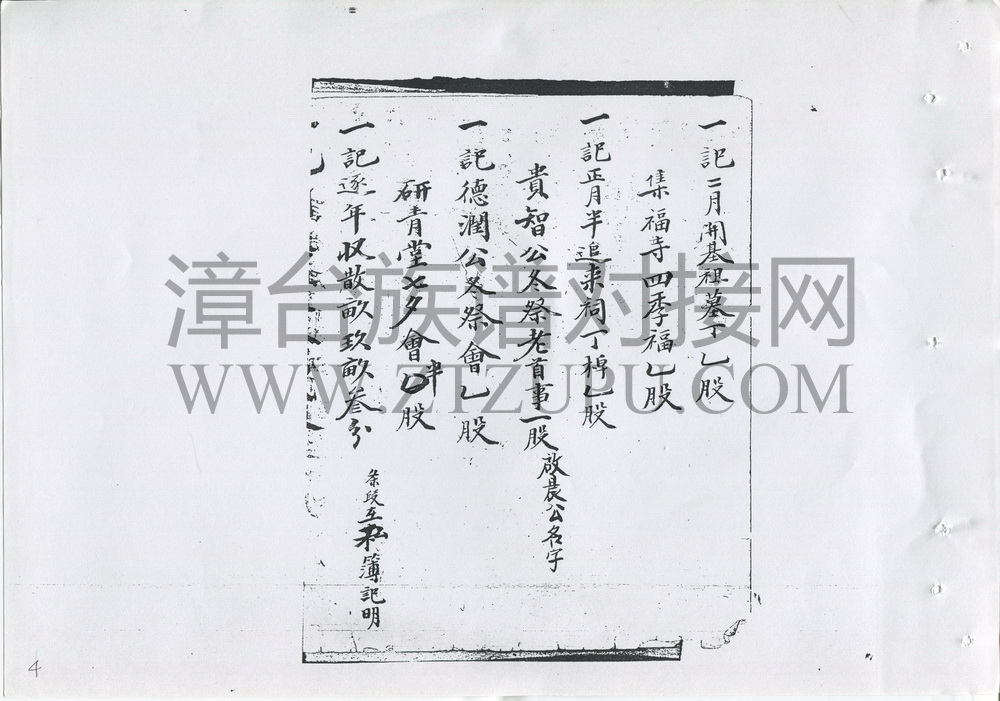 一記二月開基祖墓丁乙股
集福寺四季福乙股
一記正月半追来祠丁棹乙股
貴智公冬祭老首事一股啟晨公名字
一記德潤公冬祭會乙股
研青堂七夕會半股
一記逐年收散畝玖畝叁分
条段在私簿記明
漳台族谱对接网
WWW.ZTZUPU.COM
4